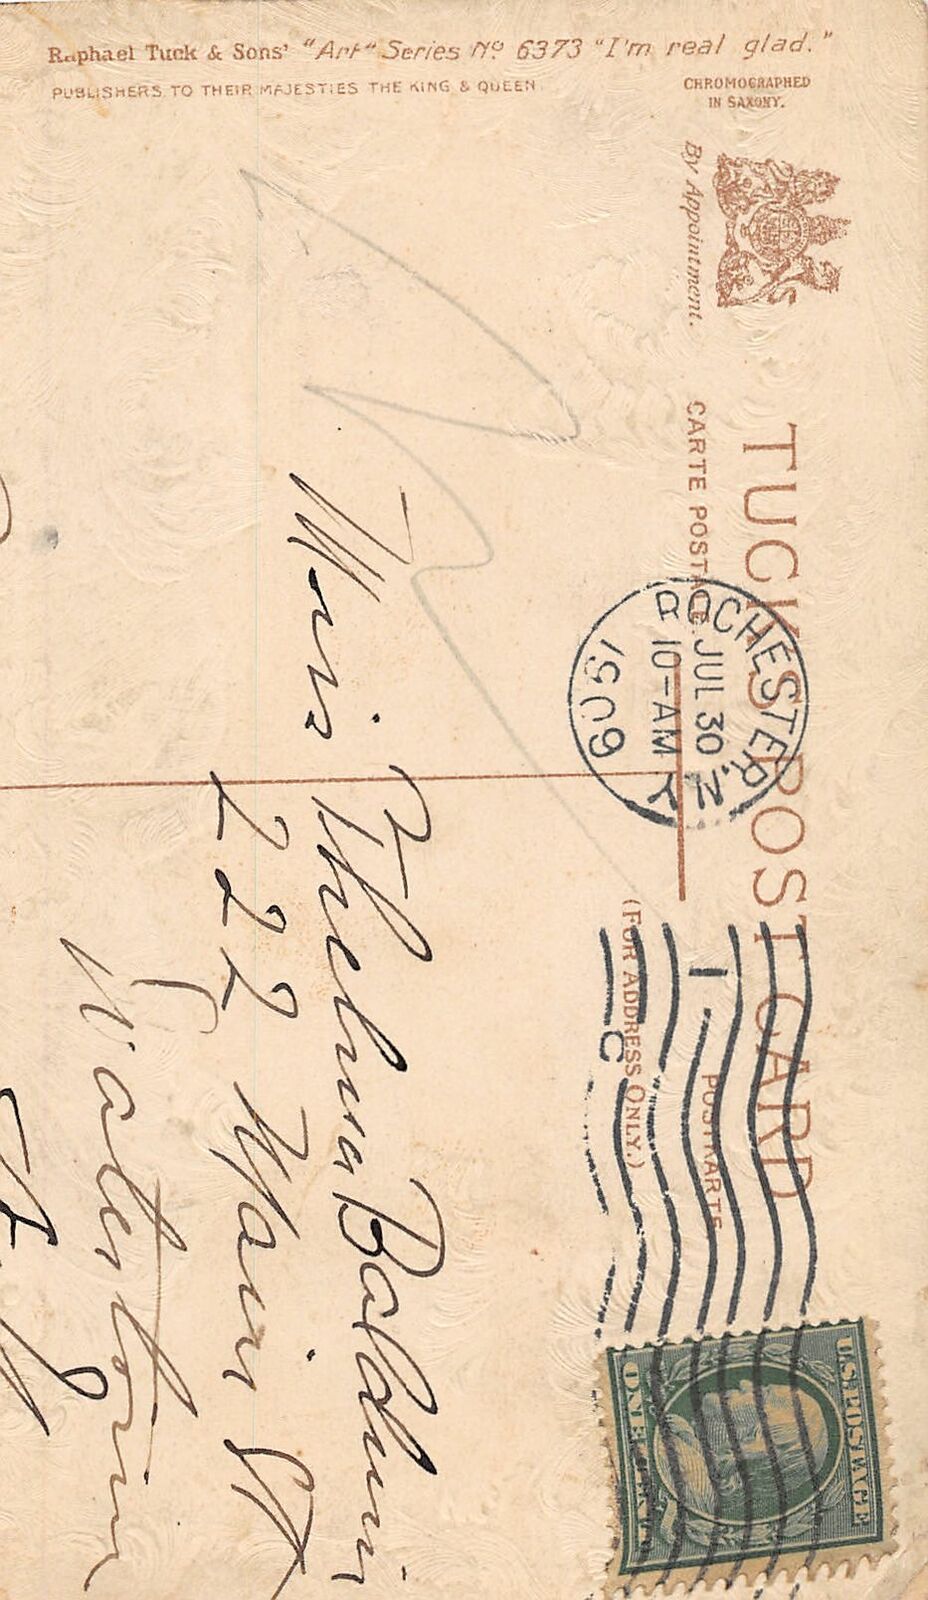 Raphael Tuck & Sons' "Art" Series Nº 6373 "I'm real glad."
PUBLISHERS TO THEIR MAJESTIES THE KING & QUEEN.
CHROMOGRAPHED
IN SAXONY.
By Appointment.
TUCK'S POST CARD
CARTE POSTALE
POSTKARTE
(FOR ADDRESS ONLY.)
ROCHESTER, N.Y.
JUL 30
10-AM
1909
1
C
U.S. POSTAGE
ONE CENT
Miss Thelma Baldwin
222 Main St
Watertown
N.Y.